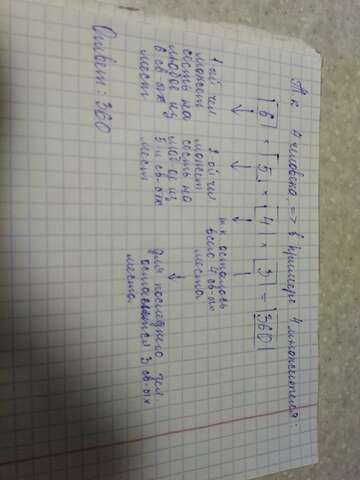 Т.к 4 человека, => в примере 4 множителя:
|6| × |5| × |4| × |3| = |360|
1-ый чел
может
сесть на
любое из
6 св-ых
мест
2 ой чел
может
сесть на
любое из
5-и св-ых
мест
т.к осталось
всего 4 св-ых
места
для последнего чел.
остаётся 3 св-ых
места.
Ответ: 360